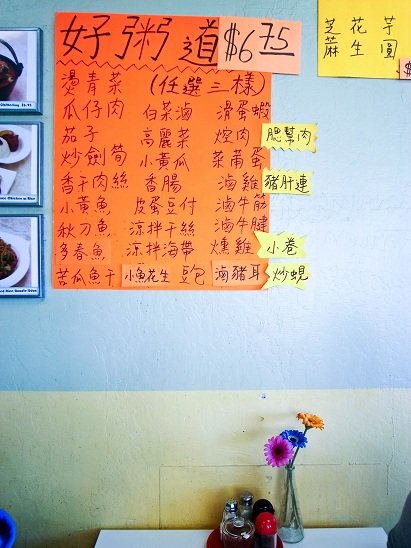 好粥道 $6.75
燙青菜 (任選三樣)
瓜仔肉 白菜滷 滑蛋蝦
茄子 高麗菜 焢肉 肥幫肉
炒劍筍 小黃瓜 菜莆蛋
香干肉絲 香腸 滷雞 豬肝連
小黃魚 皮蛋豆付 滷牛筋
秋刀魚 涼拌干絲 滷牛腱
多春魚 涼拌海帶 燻雞 小卷
苦瓜魚干 小魚花生 豆包 滷豬耳 炒蜆
芝麻 花生 芋圓
$